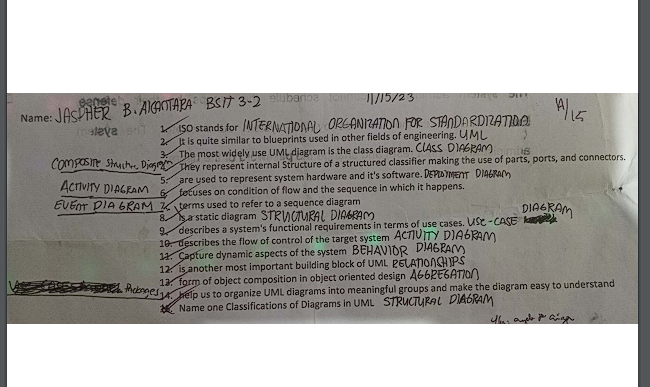 Name: JASPHER B. ALCANTARA BSIT 3-2 11/15/23 14/15
1. ISO stands for INTERNATIONAL ORGANIZATION FOR STANDARDIZATION
2. It is quite similar to blueprints used in other fields of engineering. UML
3. The most widely use UML diagram is the class diagram. CLASS DIAGRAM
COMPOSITE Structure Diagram 4. They represent internal Structure of a structured classifier making the use of parts, ports, and connectors.
5. are used to represent system hardware and it's software. DEPLOYMENT DIAGRAM
ACTIVITY DIAGRAM 6. focuses on condition of flow and the sequence in which it happens.
EVENT DIAGRAM 7. terms used to refer to a sequence diagram
8. Is a static diagram STRUCTURAL DIAGRAM
9. describes a system's functional requirements in terms of use cases. USE-CASE DIAGRAM
10. describes the flow of control of the target system ACTIVITY DIAGRAM
11. Capture dynamic aspects of the system BEHAVIOR DIAGRAM
12. is another most important building block of UML RELATIONSHIPS
13. form of object composition in object oriented design AGGREGATION
Packages 14. help us to organize UML diagrams into meaningful groups and make the diagram easy to understand
15. Name one Classifications of Diagrams in UML STRUCTURAL DIAGRAM